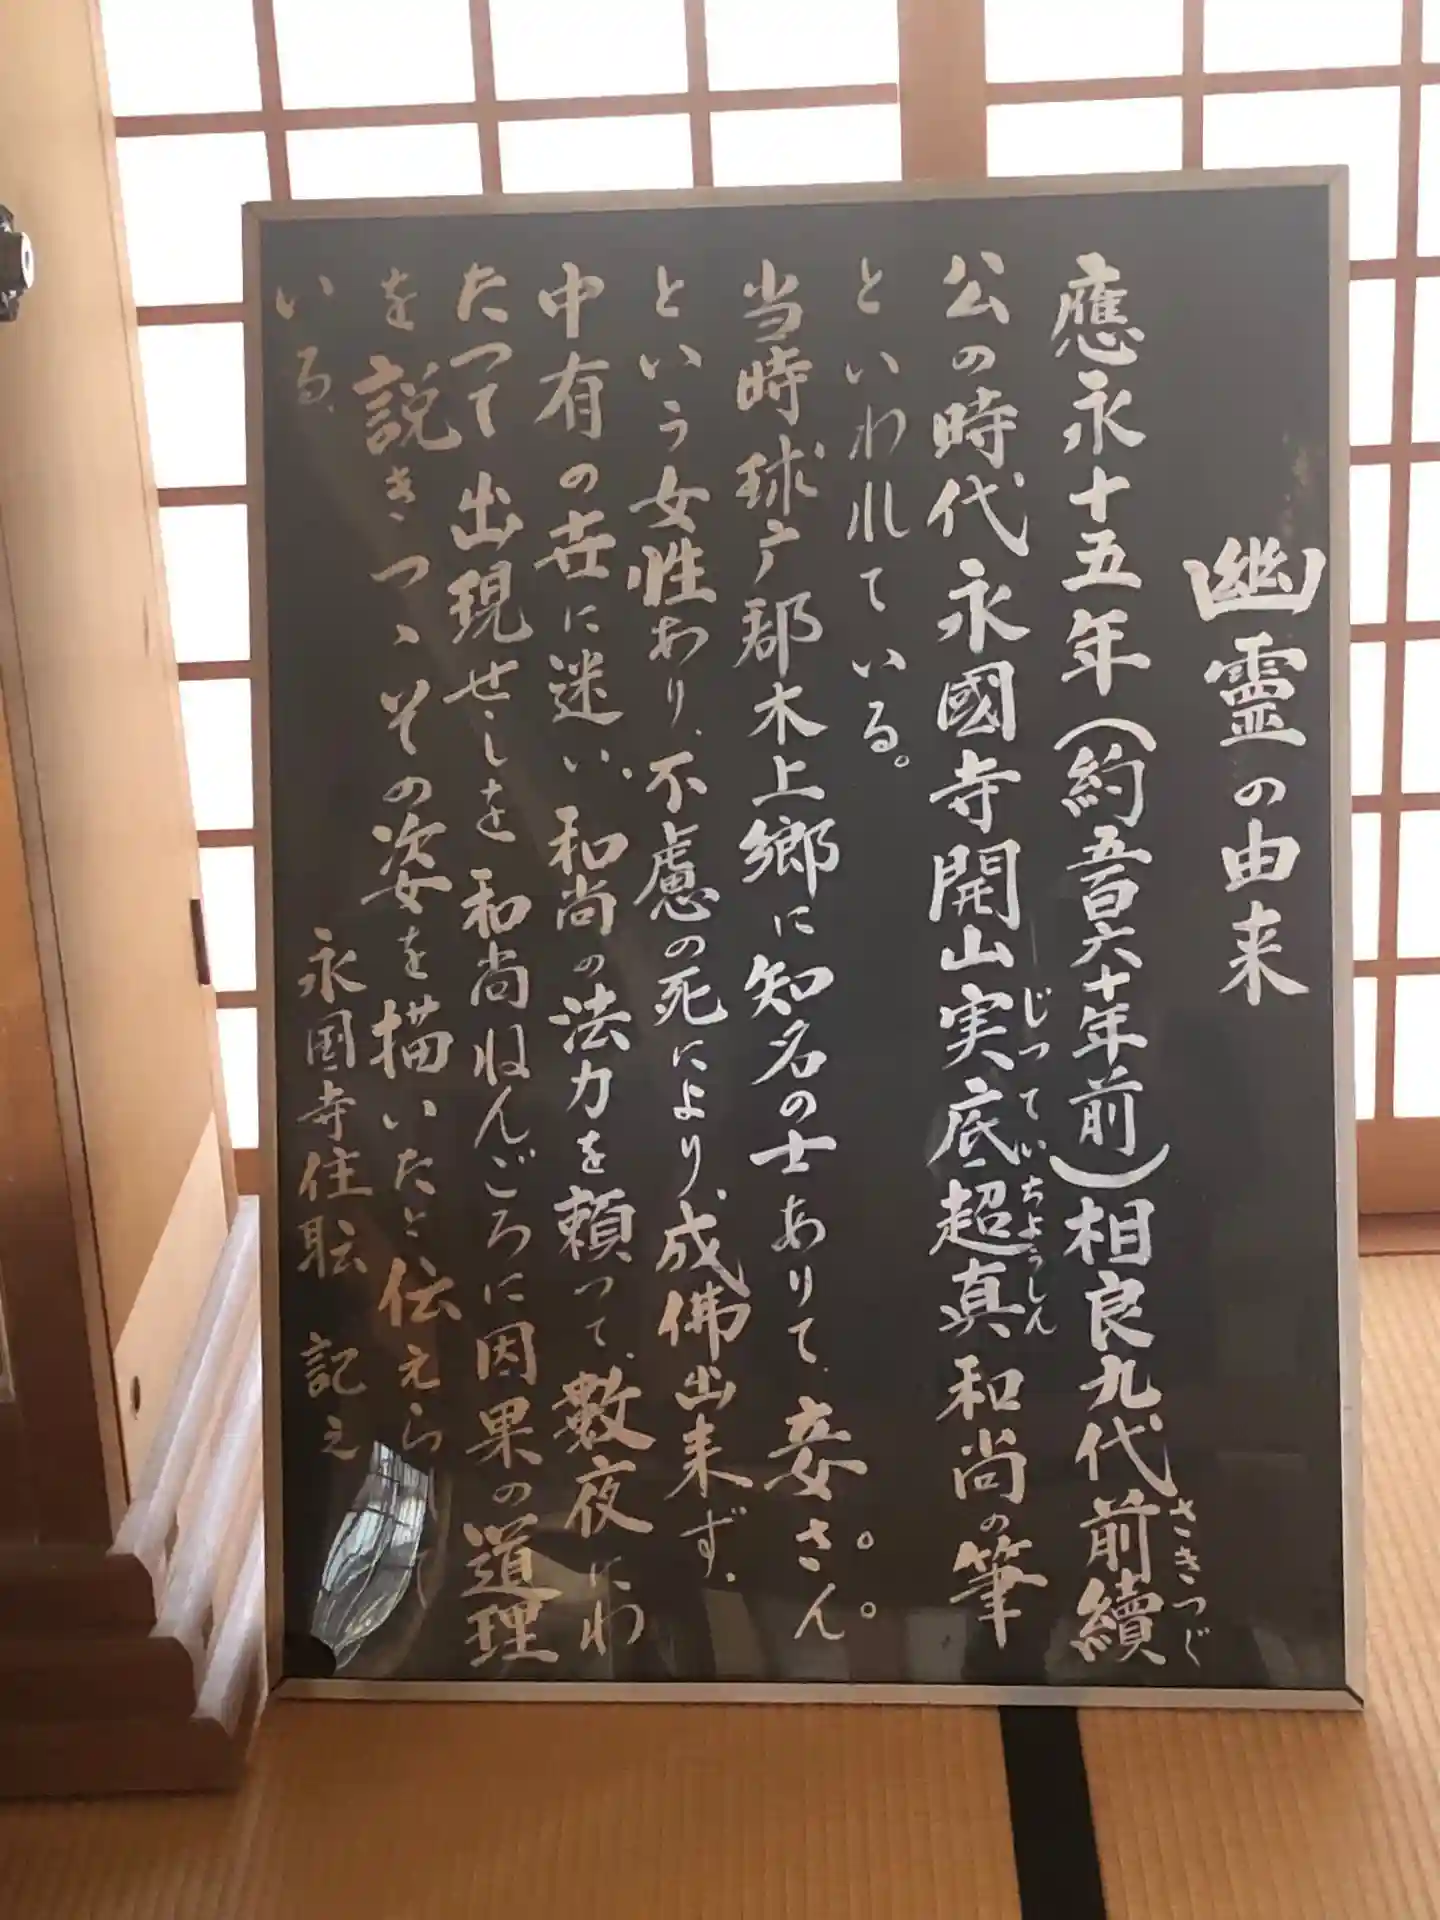 幽霊の由来
應永十五年(約五百六十年前)相良九代前續
さきつぐ
公の時代永國寺開山実底超真和尚の筆
じつていちようしん
といわれている。
当時球广郡木上郷に知名の士ありて、妾さん
という女性あり、不慮の死により、成佛出来ず、
中有の世に迷い、和尚の法力を頼つて、数夜にわ
たつて出現せしを和尚ねんごろに因果の道理
を説きつゝその姿を描いたと伝えられて
いる、
永国寺住職 記之